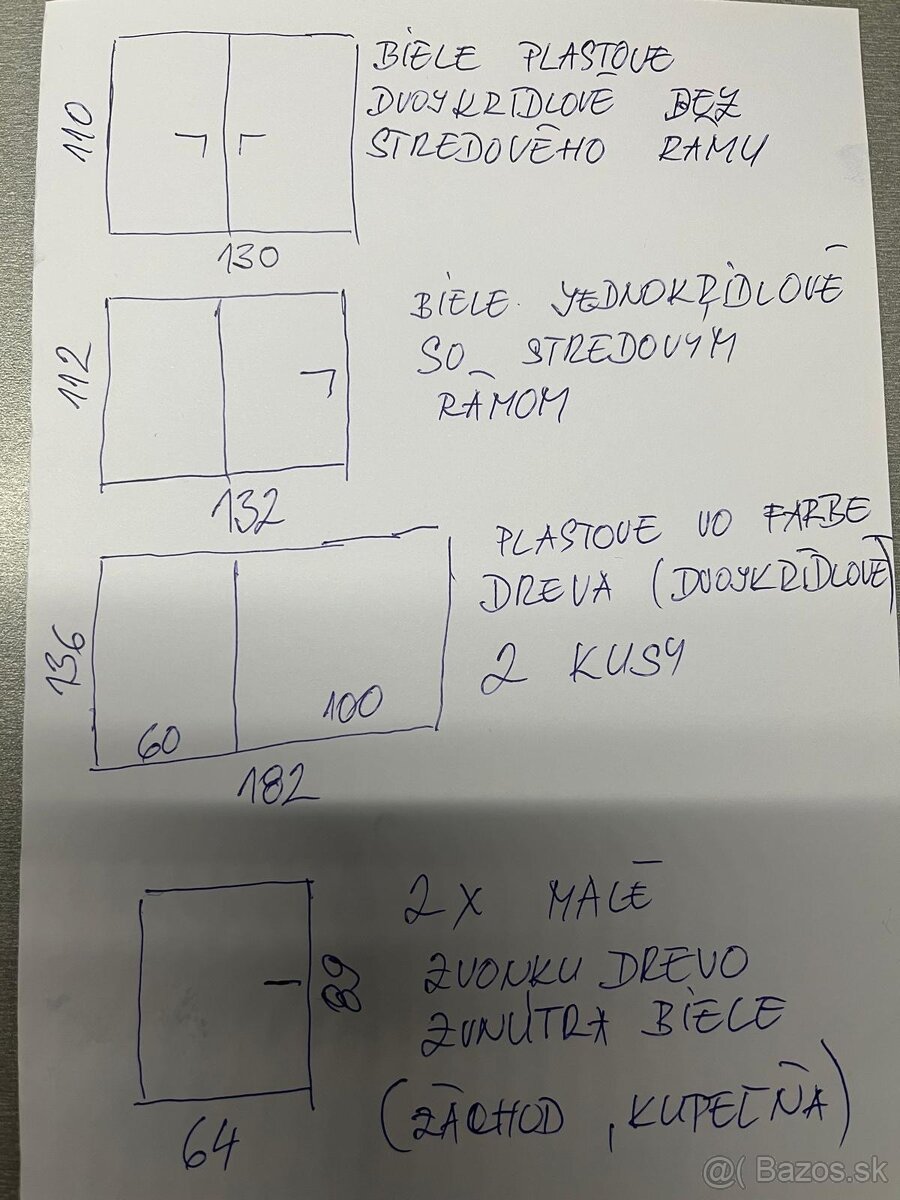 BIELE PLASTOVE
DVOJKRÍDLOVÉ BEZ
STREDOVÉHO RAMU
110
130
BIELE JEDNOKRÍDLOVÉ
SO STREDOVYM
RÁMOM
112
132
PLASTOVE VO FARBE
DREVA (DVOJKRÍDLOVÉ)
2 KUSY
136
60
100
182
2X MALÉ
ZVONKU DREVO
ZVNÚTRA BIELE
(ZÁCHOD, KUPEĽŇA)
89
64
@( Bazos.sk